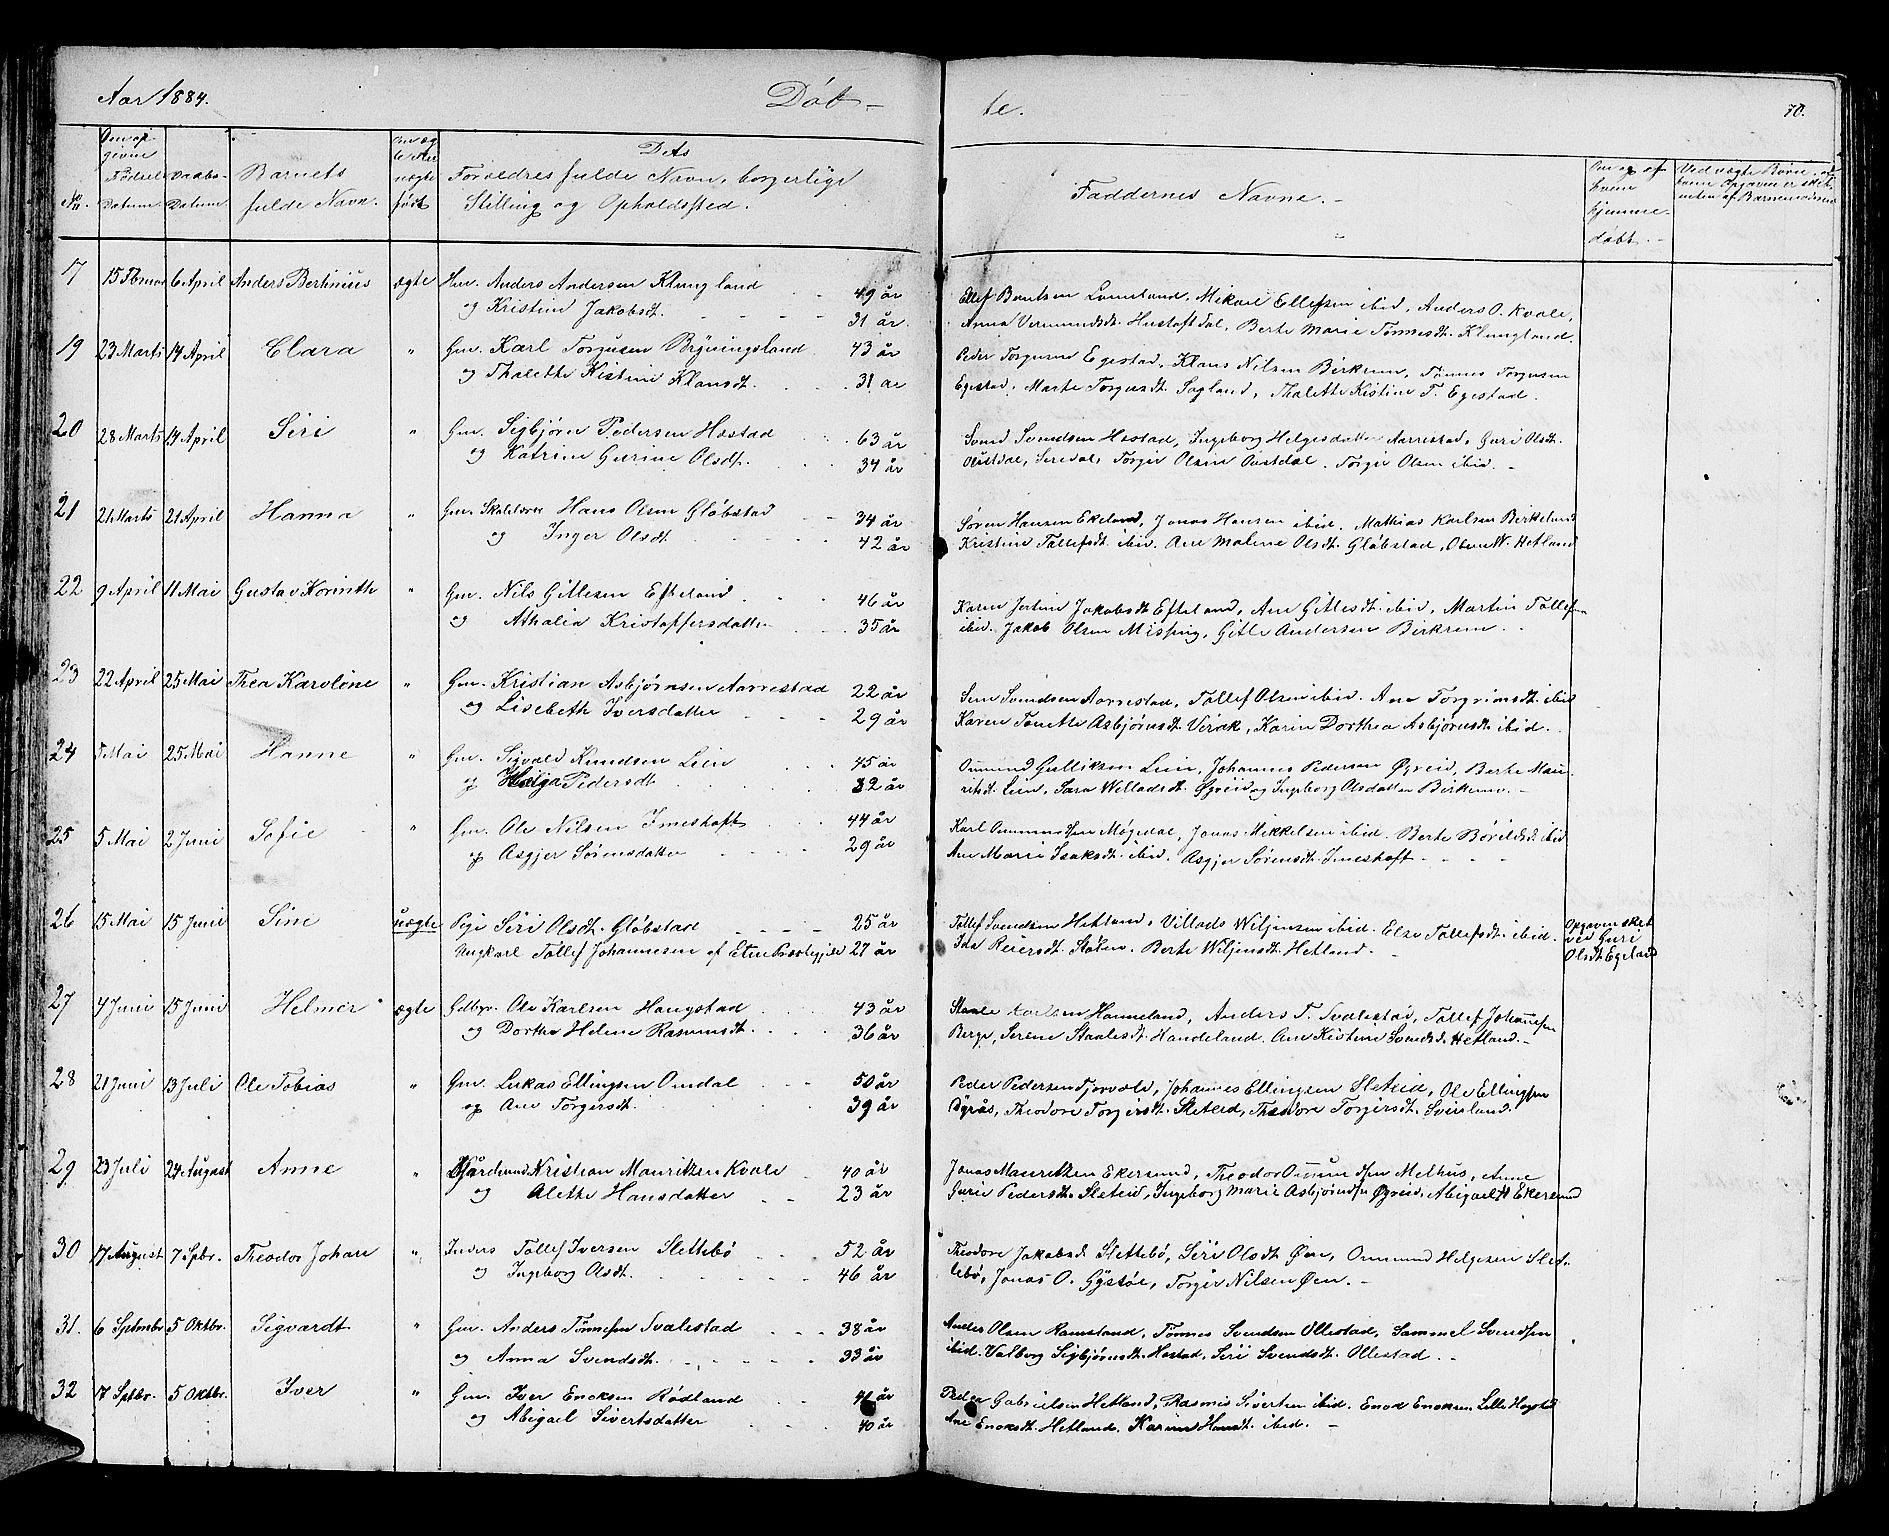 Aar 1884.
Døb-
te.
70.
No.
Den op-
givne
Fødsels
Datum.
Daabs-
Datum.
Barnets
fulde Navn.
Om æg-
te eller
uægte
født
Dets
Forældres fulde Navn, borgerlige
Stilling og Opholdssted.
Faddernes Navne.
17 15 Fbruar 6 April Anders Bertinius ægte Gm. Anders Andersen Klungland 49 år
og Kristine Jakobsdt. 31 år.
Ellef Bentsen Lomeland. Mikael Ellefsen ibid, Anders O. Kvale,
Anna Vermundsdt. Hustoft dal, Berte Marie Tønnesdt. Klungland.
19 23 Marts 14 April Clara " Gm. Karl Torgusen Bryningsland 43 år
og Thalette Kistine Klausdt. 31 år
Peder Torgusen Egestad, Klaus Nilsen Birkrem, Tønnes Torgusen
Egestad. Marte Torgusdt. Sagland, Thalette Kistine T. Egestad.
20 28 Marts 14 April Siri " Gm. Sigbjørn Pedersen Hæstad 63 år
og Katrine Gurine Olsdt. 34 år
Svend Svendsen Hæstad, Ingeborg Helgesdatter Aarrestad, Guri Olsdt.
Torger Olsen Ovstdal. Torger Olsen ibid. -
21 21 Marts 21 April Hanna " Gm. Skolelærer Hans Olsen Gløbstad 34 år
og Inger Olsdt. 42 år
Søren Hansen Ekeland, Jonas Hansen ibid. Mathias Karlsen Birkeland
Kristine Tollefsdt. ibid. Ane Malene Olsdt. Gløbstad, W. Hetland
22 9 April 11 Mai Gustav Korinth " Gm. Nils Gitlesen Efteland 46 år
og Athalia Kristoffersdatter 35 år
Karen Jertine Jakobsdt Efteland, Ane Gitlesdt. ibid, Martin Tollefsen
ibid. Jakob Olsen Mising, Gitle Andersen Birkrem.
23 22 April 25 Mai Thea Karoline " Gm. Kristian Asbjørnsen Aarrestad 22 år
og Lisebeth Iversdatter 29 år
Svendsen Aarrestad, Tollef Olsen ibid. Ane Torgrimsdt. ibid
Karen Tonette Asbjørnsdt. Verak, Karin Dorthea Asbjørnsdt. ibid.
24 5 Mai 25 Mai Hanne " Gm. Sigvald Knudsen Lein 45 år
og Helga Pedersdt 32 år
Ommund Gulliksen Lein, Johannes Pedersen Øgreid, Berte Mau-
ritsdt. Lein. Sara Willadsdt. Øgreid og Ingeborg Olsdatter Birkrem. -
25 5 Mai 2 Juni Sofie " Gm. Ole Nilsen Ineshoft 44 år
og Asgjer Sørensdatter 29 år
Karl Ommundsen Møgedal, Jonas Mikkelsen ibid. Berte Børildsdt. ibid
Ane Marie Isaksdt. ibid. Asgjer Sørensdt. Ineshoft.
26 15 Mai 15 Juni Sine uægte Pige Siri Olsdt. Gløbstad 25 år
Ungkarl Tollef Johannesen af Etne Præstegjeld 27 år
Tollef Svendsen Hetland, Villads Wiljensen ibid. Else Tollefsdt. ibid.
Ida Reiersdt. Støten. Berte Wiljensdt. Hetland.
Opgaven sket
ved Guri
Olsdt. Egeland
27 4 Juni 15 Juni Helmer ægte Gdbr. Ole Karlsen Haugstad 43 år
og Dorthea Helene Rasmusdt. 36 år
Staale Karlsen Hanneland, Anders T. Svalestad, Tollef Johannesen
Berge, Serene Staalesdt. Handeland. Ane Kistine Svendsdt. Hetland. -
28 21 Juni 13 Juli Ole Tobias " Gm. Lukas Ellingsen Omdal 50 år
og Ane Torgersdt. 39 år
Peder Pedersen Tjorvale, Johannes Ellingsen Sleteid, Ole Ellingsen
Bjrås, Theodore Torgersdt. Sleteid, Theodore Torgersdt. Sveiland.
29 23 Juli 24 August Anne " Gårdmand Kristian Mauritzen Kvale 40 år
og Alette Hansdatter 23 år
Jonas Mauritzen Ekersund, Theodor Ommundsen Melhus, Anne
Gurie Pedersdt. Sleteid, Ingeborg Marie Asbjørnsdtr. Øgreid, Abigael H. Ekersund
30 17 August 7 Spbr. Theodor Johan " Inders Tollef Iversen Slettebø 52 år
og Ingeborg Olsdt. 46 år
Theodore Jakobsd. Slettebø, Siri Olsdt. Øen, Ommund Helgesen Slet-
tebø, Jonas O. Gystøl, Torger Nilsen Øen. -
31. 6 Sptmbr 5 Oktbr. Sigvardt " Gm. Anders Tønnesen Svalestad 38 år
og Anna Svendsdt. 33 år
Anders Olsen Ramsland, Tønnes Svendsen Ollestad, Sammel Svendsen
ibid. Valborg Sigbjørnsdt. Hæstad, Siri Svendsdt. Ollestad. -
32 17 Sptbr. 5 Oktbr. Iver " Gm. Iver Enoksen Rødland 41 år
og Abigael Sivertsdatter 40 år
Peder Gabrielsen Hetland, Rasmus Sivertsen ibid. Enok Enoksen Lille Hogstad
Ane Enoksdt. Hetland. Karine Hansdt. ibid. -